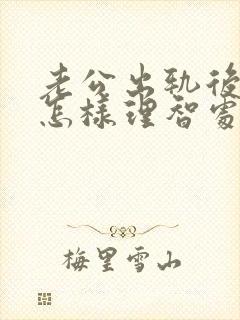 老公出軌後
怎樣理智處
梅里雪山